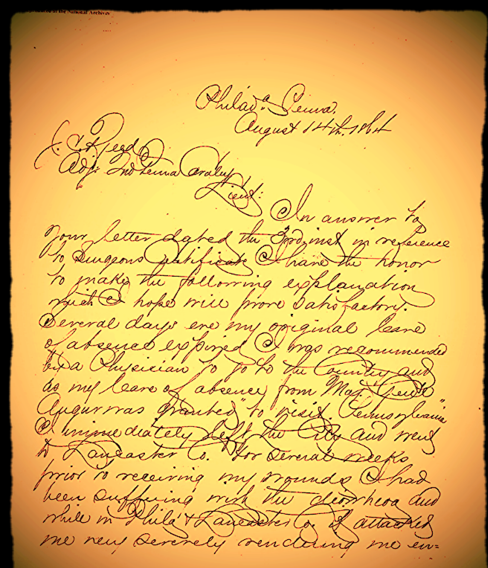 in the National Archives
Philad.a Penna.
August 14th, 1864
J. T. Reed
Adj. 2nd Penna Cavalry
Lieut:
In answer to
your letter dated the 3rd inst in reference
to surgeons certificate I have the honor
to make the following explanation
which I hope will prove satisfactory.
Several days ere my original leave
of absence expired I was recommended
by a Physician to go to the Country and
as my leave of absence from Maj. Genl
Augur was granted "to visit Pennsylvania"
I immediately left the City and went
to Lancaster Co. For several weeks
prior to receiving my wounds I had
been suffering with the diorrhoea and
while in Phila & Lancaster Co. it attacked
me very severely rendering me en-